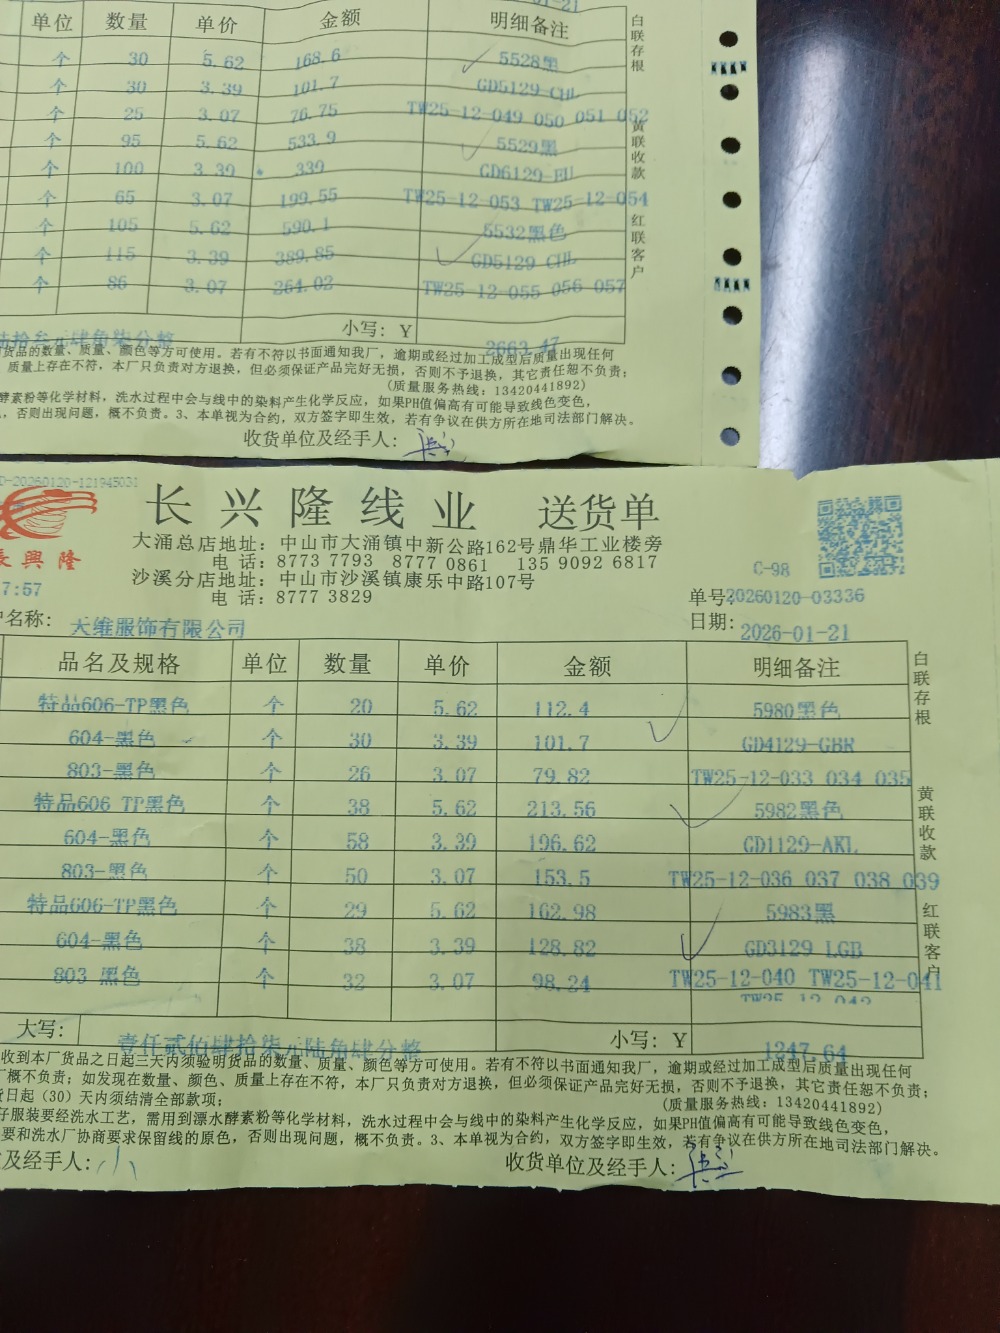 01-21
单位 数量 单价 金额 明细备注
个 30 5.62 168.6 5528黑
个 30 3.39 101.7 GD5129-CHL
个 25 3.07 76.75 TW25-12-049 050 051 052
个 95 5.62 533.9 5529黑
个 100 3.39 339 GD6129-EU
个 65 3.07 199.55 TW25-12-053 TW25-12-054
个 105 5.62 590.1 5532黑色
个 115 3.39 389.85 GD5129 CHL
个 86 3.07 264.02 TW25-12-055 056 057
白联存根
黄联收款
红联客户
小写：Y 2663.47
陆拾叁元肆角柒分整
货品的数量、质量、颜色等方可使用。若有不符以书面通知我厂，逾期或经过加工成型后质量出现任何
质量上存在不符，本厂只负责对方退换，但必须保证产品完好无损，否则不予退换，其它责任恕不负责；
(质量服务热线：13420441892)
酵素粉等化学材料，洗水过程中会与线中的染料产生化学反应，如果PH值偏高有可能导致线色变色，
，否则出现问题，概不负责。3、本单视为合约，双方签字即生效，若有争议在供方所在地司法部门解决。
收货单位及经手人：
D-20260120-121945031
長興隆
长兴隆线业 送货单
大涌总店地址：中山市大涌镇中新公路162号鼎华工业楼旁
电 话：8773 7793 8777 0861 135 9092 6817
沙溪分店地址：中山市沙溪镇康乐中路107号
电 话：8777 3829
C-98
7:57
单号:20260120-03336
户名称： 大维服饰有限公司
日期: 2026-01-21
品名及规格 单位 数量 单价 金额 明细备注
特品606-TP黑色 个 20 5.62 112.4 5980黑色
604-黑色 个 30 3.39 101.7 GD4129-GBR
803-黑色 个 26 3.07 79.82 TW25-12-033 034 035
特品606 TP黑色 个 38 5.62 213.56 5982黑色
604-黑色 个 58 3.39 196.62 GD1129-AKL
803-黑色 个 50 3.07 153.5 TW25-12-036 037 038 039
特品606-TP黑色 个 29 5.62 162.98 5983黑
604-黑色 个 38 3.39 128.82 GD3129 LGB
803 黑色 个 32 3.07 98.24 TW25-12-040 TW25-12-041
TW25 12 042
白联存根
黄联收款
红联客户
大写： 壹仟贰佰肆拾柒元陆角肆分整 小写：Y 1247.64
收到本厂货品之日起三天内须验明货品的数量、质量、颜色等方可使用。若有不符以书面通知我厂，逾期或经过加工成型后质量出现任何
厂概不负责；如发现在数量、颜色、质量上存在不符，本厂只负责对方退换，但必须保证产品完好无损，否则不予退换，其它责任恕不负责；
货日起（30）天内须结清全部款项；
(质量服务热线：13420441892)
仔服装要经洗水工艺，需用到漂水酵素粉等化学材料，洗水过程中会与线中的染料产生化学反应，如果PH值偏高有可能导致线色变色，
要和洗水厂协商要求保留线的原色，否则出现问题，概不负责。3、本单视为合约，双方签字即生效，若有争议在供方所在地司法部门解决。
及经手人：
收货单位及经手人：